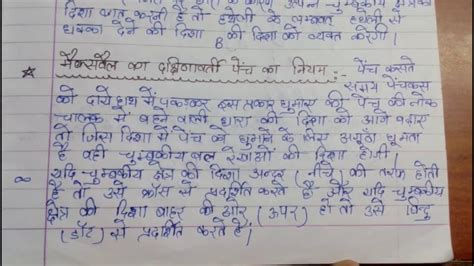 दिशा ज्ञात करनी हो तो हथेली के लम्बवत् हथेली से
धक्का देने की दिशा B की दिशा को व्यक्त करेगी।
* मैक्सवैल का दक्षिणावर्ती पेंच का नियम :- पेंच कसते
समय पेंचकस
को दाये हाथ में पकड़कर इस प्रकार घुमाए की पेंच की नोक
चालक में बहने वाली धारा की दिशा को आगे बढ़ाए
तो जिस दिशा में पेंच को घुमाने के लिए अगूठा घूमता
है वही चुम्बकीय बल रेखाओं की दिशा होगी।
यदि चुम्बकीय क्षेत्र की दिशा अन्दर (नीचे) की तरफ होती
है तो उसे क्रॉस से प्रदर्शित करते है और यदि चुम्बकीय
क्षेत्र की दिशा बाहर की ओर (ऊपर) हो तो उसे बिन्दु
(डॉट) से प्रदर्शित करते है।